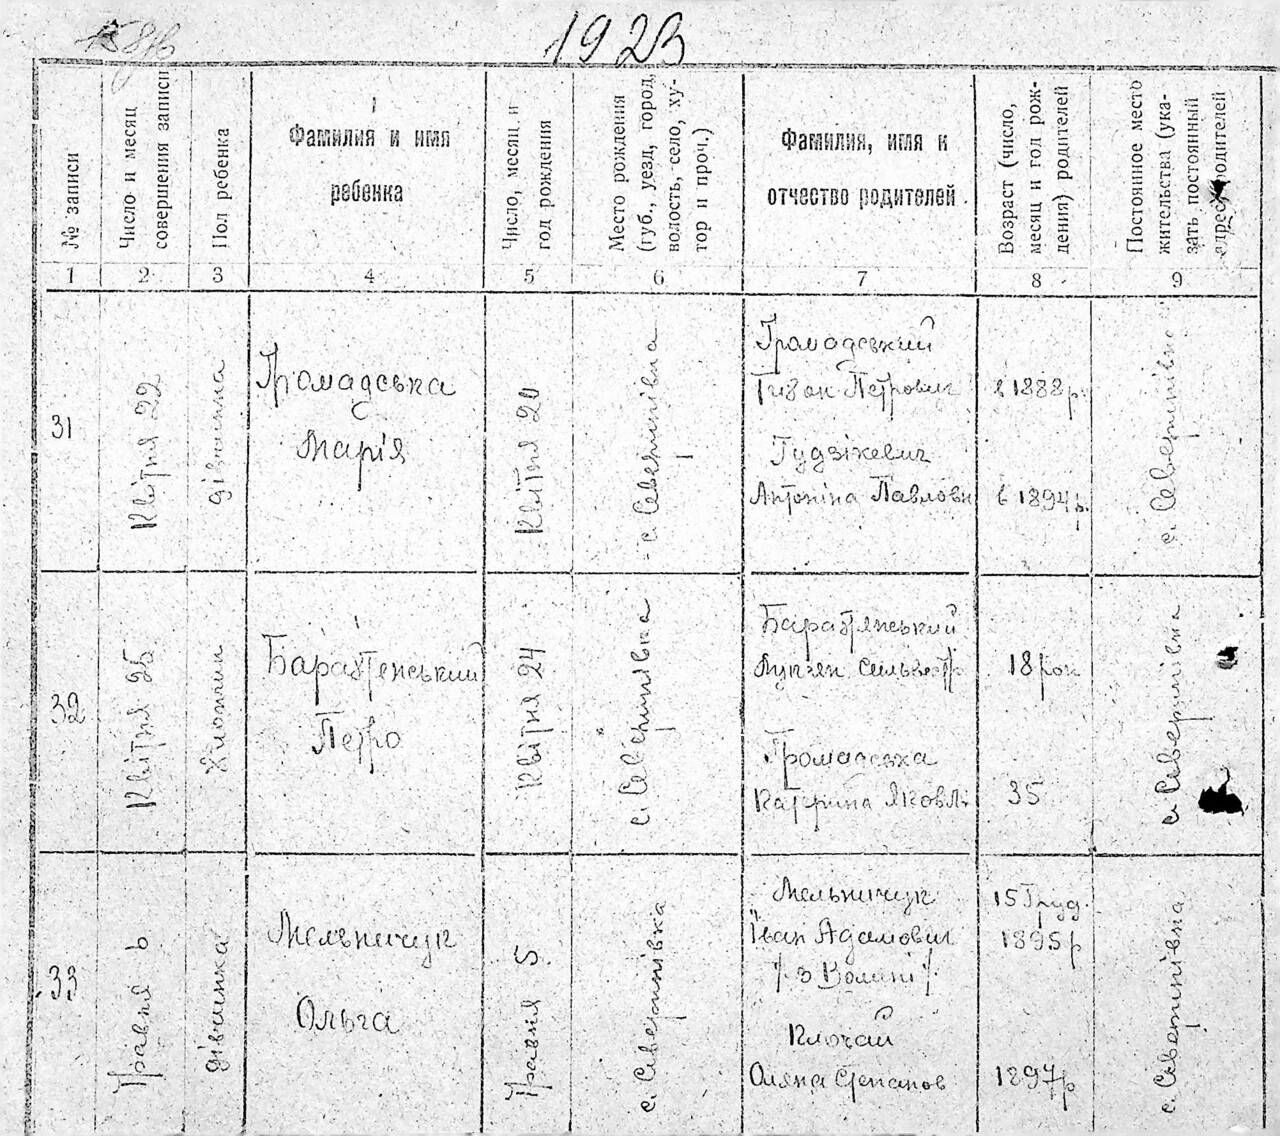 1923
№ записи
Число и месяц
совершения записи
Пол ребенка
Фамилия и имя
ребенка
Число, месяц и
год рождения
Место рождения
(губ., уезд, город,
волость, село, ху-
тор и проч.)
Фамилия, имя и
отчество родителей
Возраст (число,
месяц и год рож-
дения) родителей
Постоянное место
жительства (ука-
зать постоянный
адрес родителей
1 2 3 4 5 6 7 8 9
31
Квітня 22
дівчинка
Громадська
Марія
Квітня 20
с. Северинівка
Громадський
Петрович
в 1888 р.
Гудзікевич
Антоніна Павловн
в 1894 р.
с. Северинівка
32
Квітня 25
Хлопчик
Петро
Квітня 24
с. Северинівка
18 рок
Громадська
Катерина Яковл
35
с. Северинівка
33
Травня 6
дівчинка
Мельничук
Ольга
Травня 5
с. Северинівка
Мельничук
Іван Адамович
/з Волині/
15 Груд.
1895 р
Клочай
Оляна Степанов
1897 р
с. Северинівка